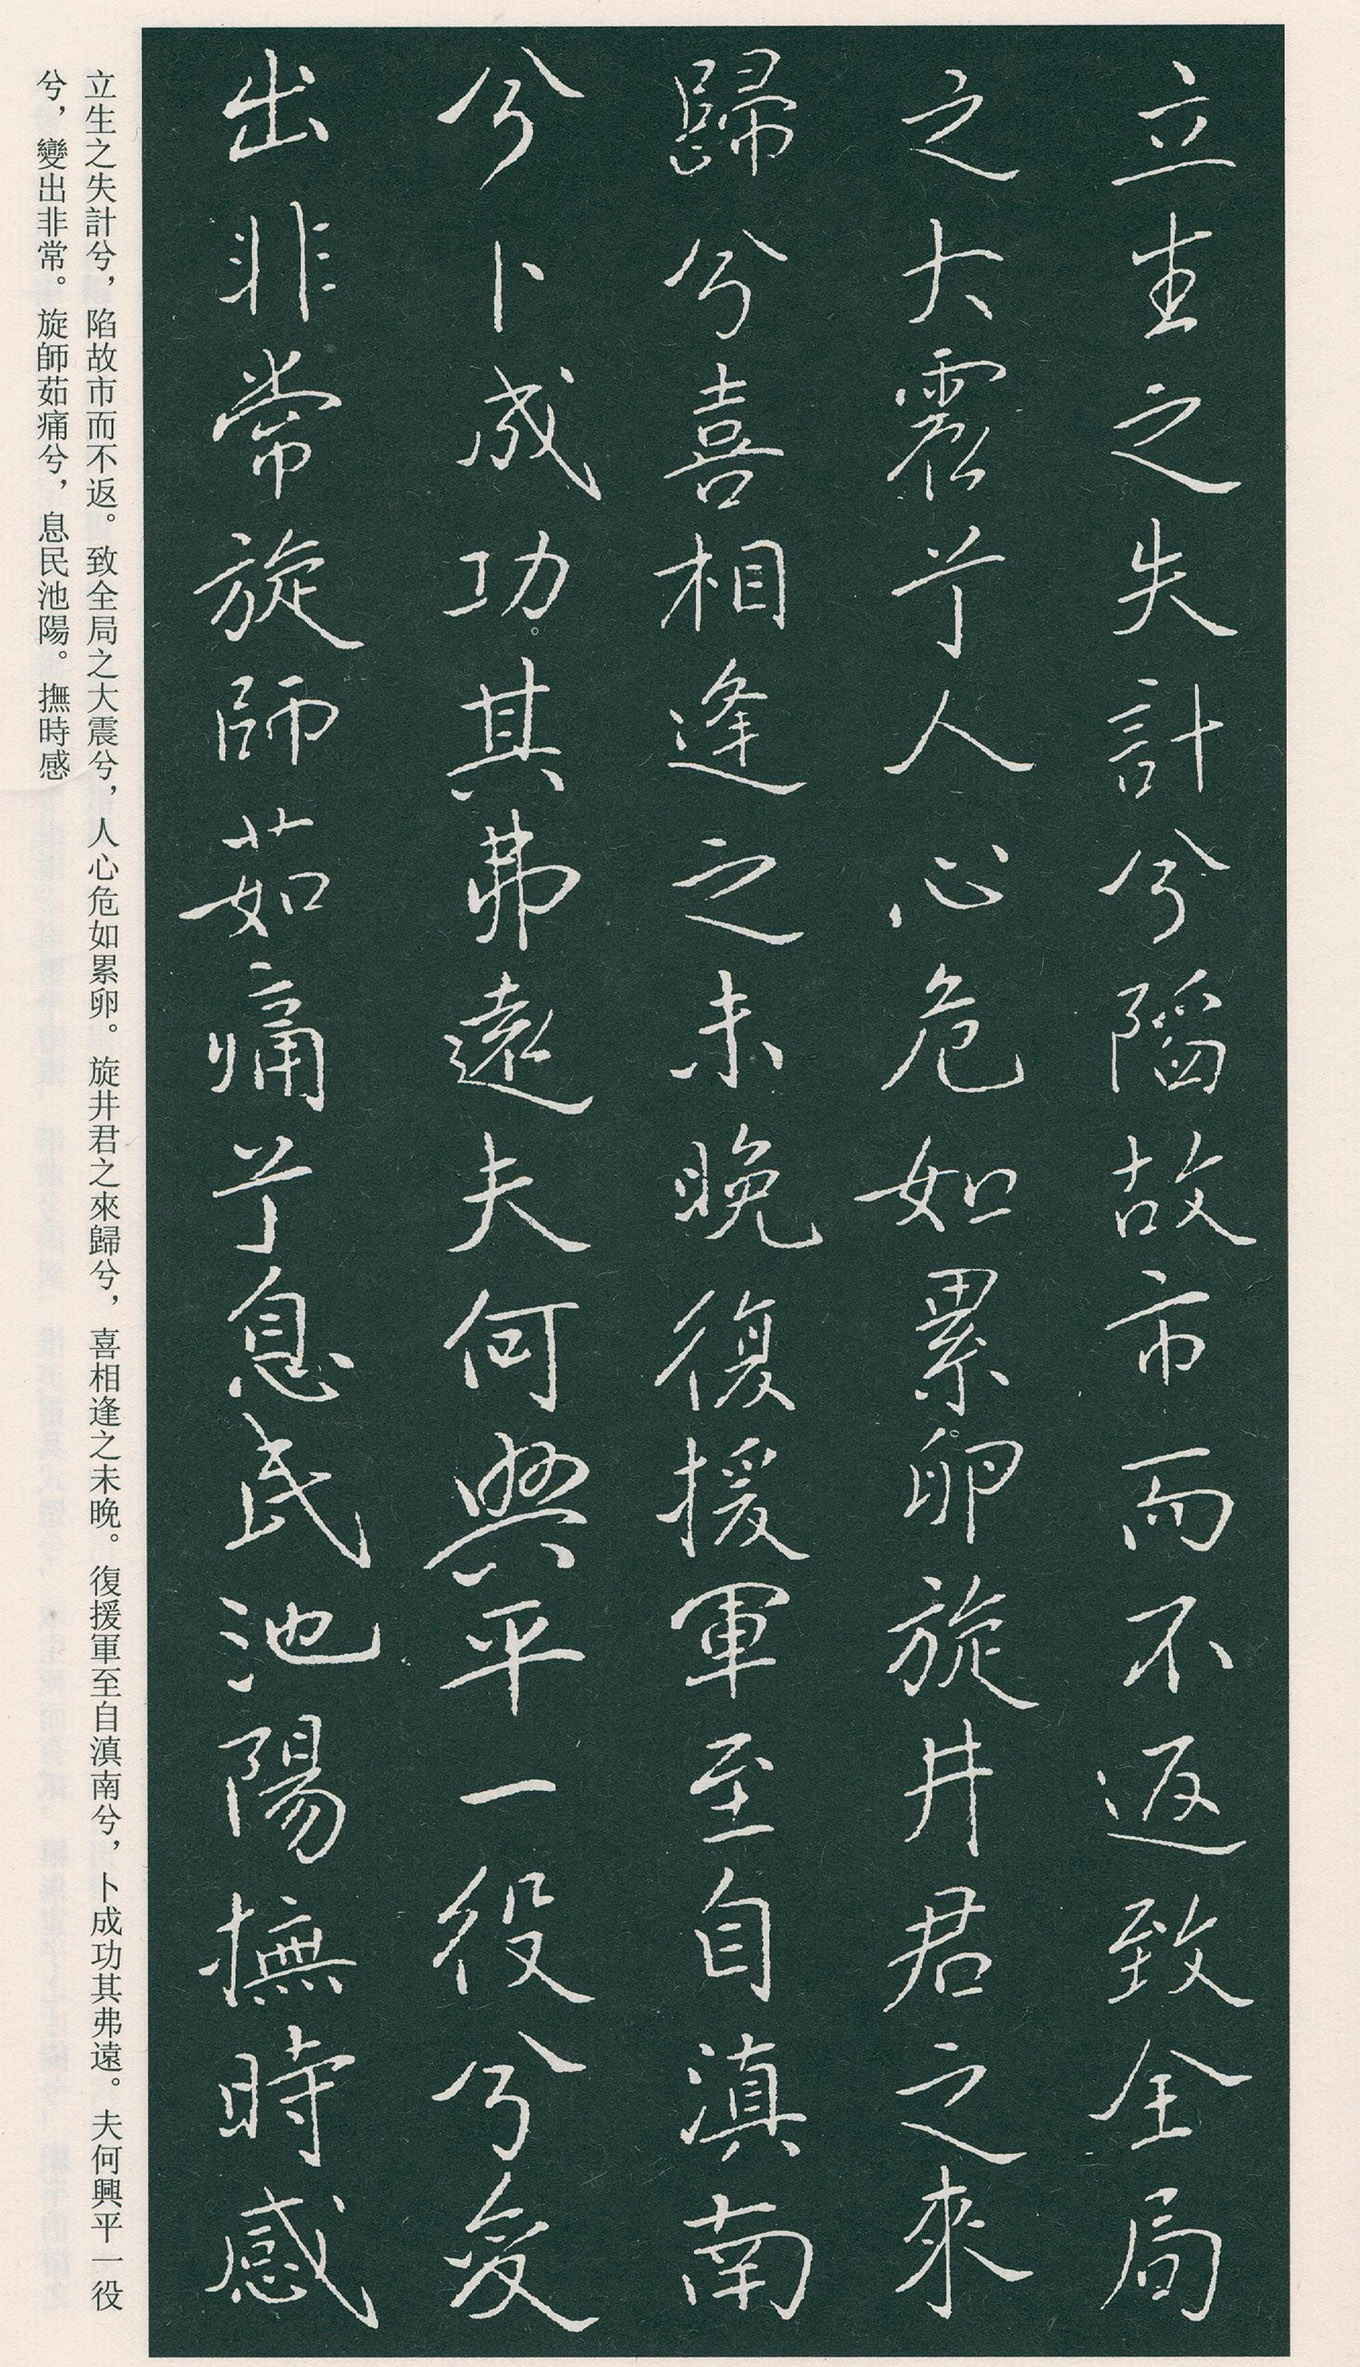 立生之失計兮陷故市而不返致全局
之大震兮人心危如累卵旋井君之來
歸兮喜相逢之未晚復援軍至自滇南
兮卜成功其弗遠夫何興平一役兮變
出非常旋師茹痛兮息民池陽撫時感
立生之失計兮，陷故市而不返。致全局之大震兮，人心危如累卵。旋井君之來歸兮，喜相逢之未晚。復援軍至自滇南兮，卜成功其弗遠。夫何興平一役
兮，變出非常。旋師茹痛兮，息民池陽。撫時感